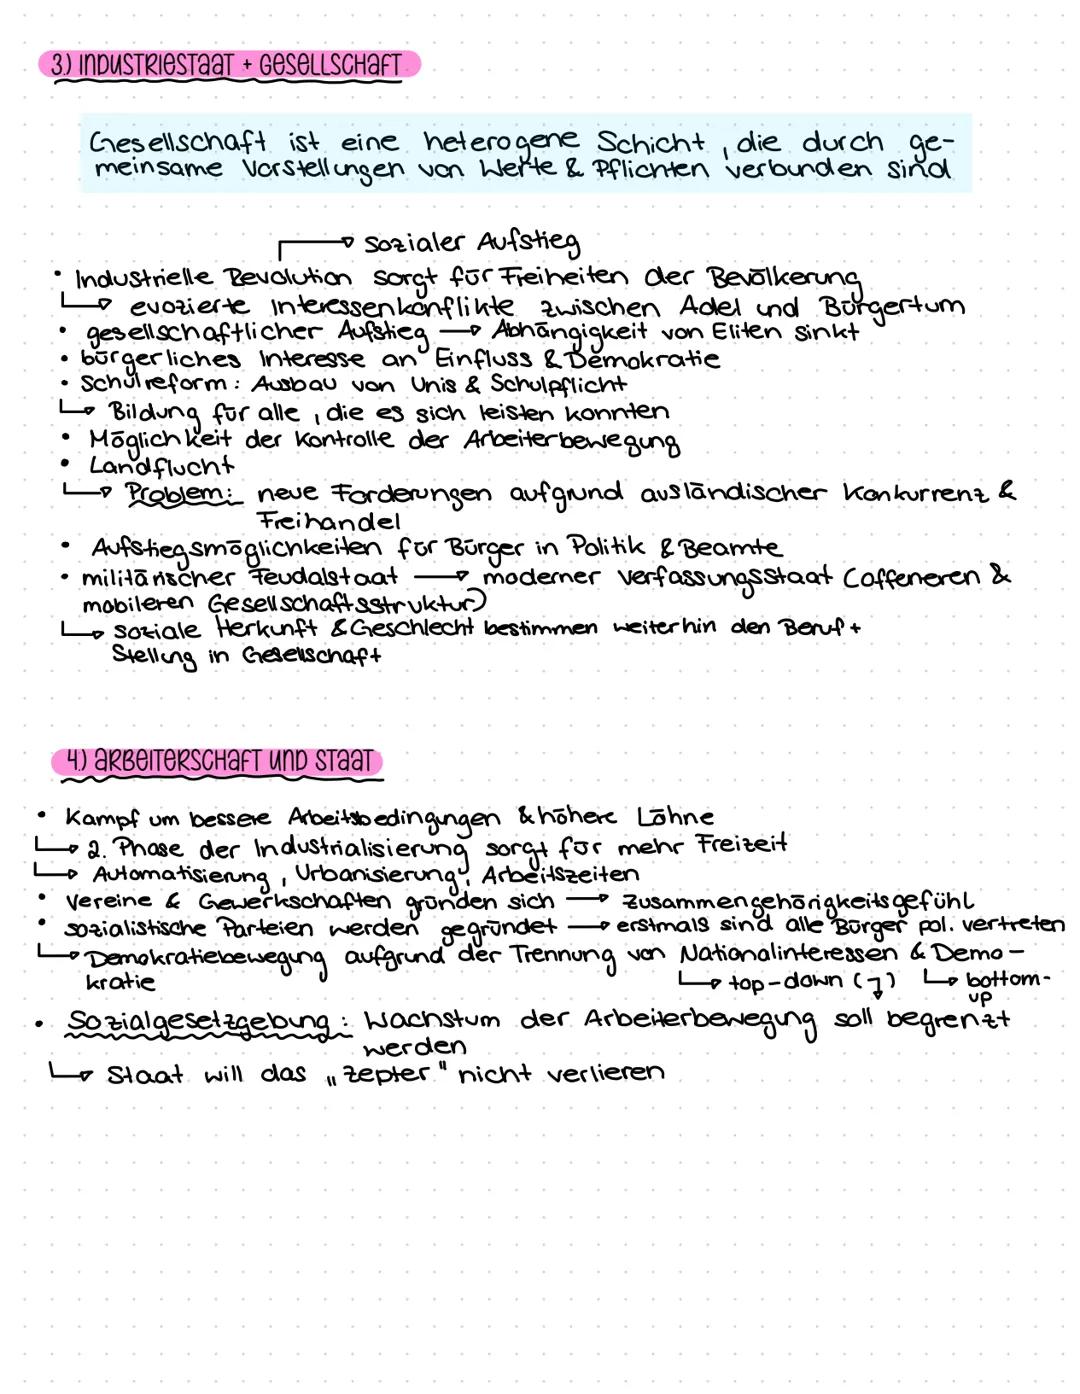 3.) INDUSTRIESTAAT + GESELLSCHAFT
Gesellschaft ist eine heterogene Schicht, die durch ge-
meinsame Vorstellungen von Werte & Pflichten verbunden sind
→ sozialer Aufstieg
• Industrielle Revolution sorgt für Freiheiten der Bevölkerung
↳ evozierte Interessenkonflikte zwischen Adel und Bürgertum
• gesellschaftlicher Aufstieg → Abhängigkeit von Eliten sinkt
• bürgerliches Interesse an Einfluss & Demokratie
• Schulreform: Ausbau von Unis & Schulpflicht
↳ Bildung für alle, die es sich leisten konnten
• Möglichkeit der Kontrolle der Arbeiterbewegung
• Landflucht
↳ Problem: neue Forderungen aufgrund ausländischer Konkurrenz &
Freihandel
• Aufstiegsmöglichkeiten für Bürger in Politik & Beamte
• militärischer Feudalstaat → moderner Verfassungsstaat (offeneren &
mobileren Gesellschaftsstruktur)
↳ soziale Herkunft & Geschlecht bestimmen weiterhin den Beruf +
Stellung in Gesellschaft
4.) ARBEITERSCHAFT UND STAAT
• Kampf um bessere Arbeitsbedingungen & höhere Löhne
↳ 2. Phase der Industrialisierung sorgt für mehr Freizeit
↳ Automatisierung, Urbanisierung, Arbeitszeiten
• Vereine & Gewerkschaften gründen sich → Zusammengehörigkeitsgefühl
• sozialistische Parteien werden gegründet → erstmals sind alle Bürger pol. vertreten
↳ Demokratiebewegung aufgrund der Trennung von Nationalinteressen & Demo-
kratie ↳ top-down (↴) ↳ bottom-
up
• Sozialgesetzgebung: Wachstum der Arbeiterbewegung soll begrenzt
werden
↳ Staat will das „Zepter" nicht verlieren